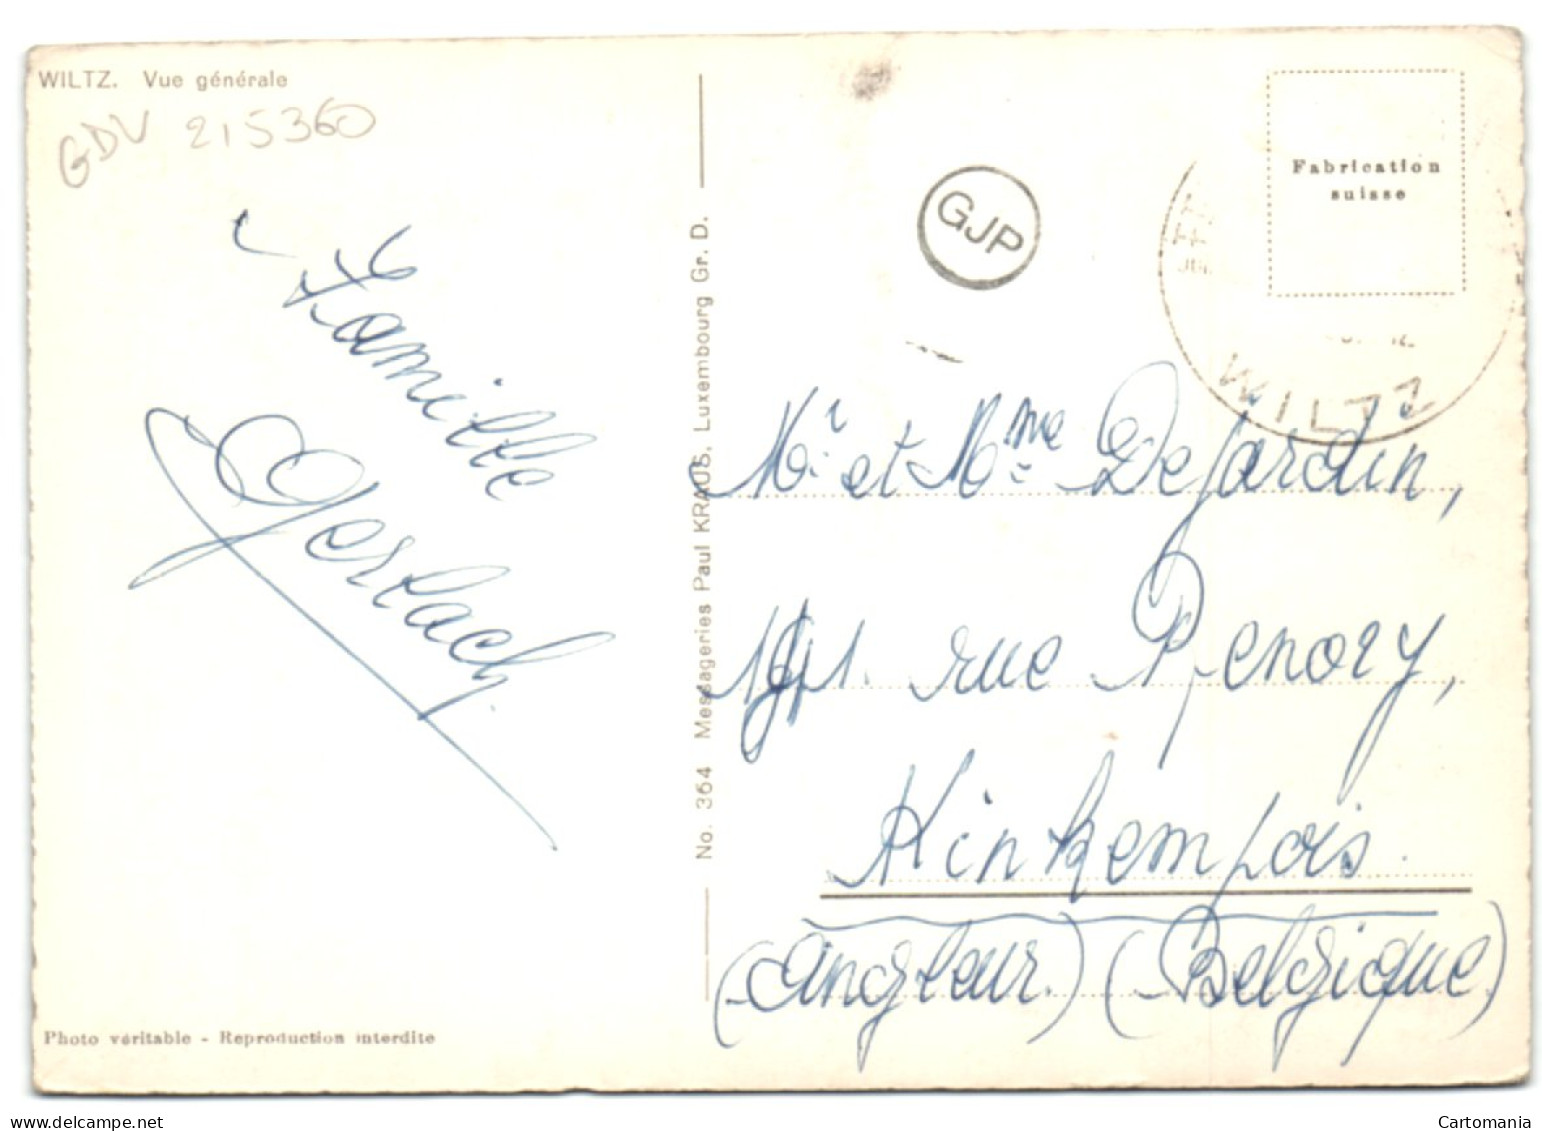 WILTZ. Vue générale
GDV 215360
Famille
Gerlach
No. 364 Messageries Paul KRAUS, Luxembourg Gr. D.
Photo véritable - Reproduction interdite
GJP
Fabrication
suisse
WILTZ
Mr. et Mme Dejardin,
rue Renory,
Kinkempois.
(Angleur.) (Belgique)
Cartomania
www.delcampe.net